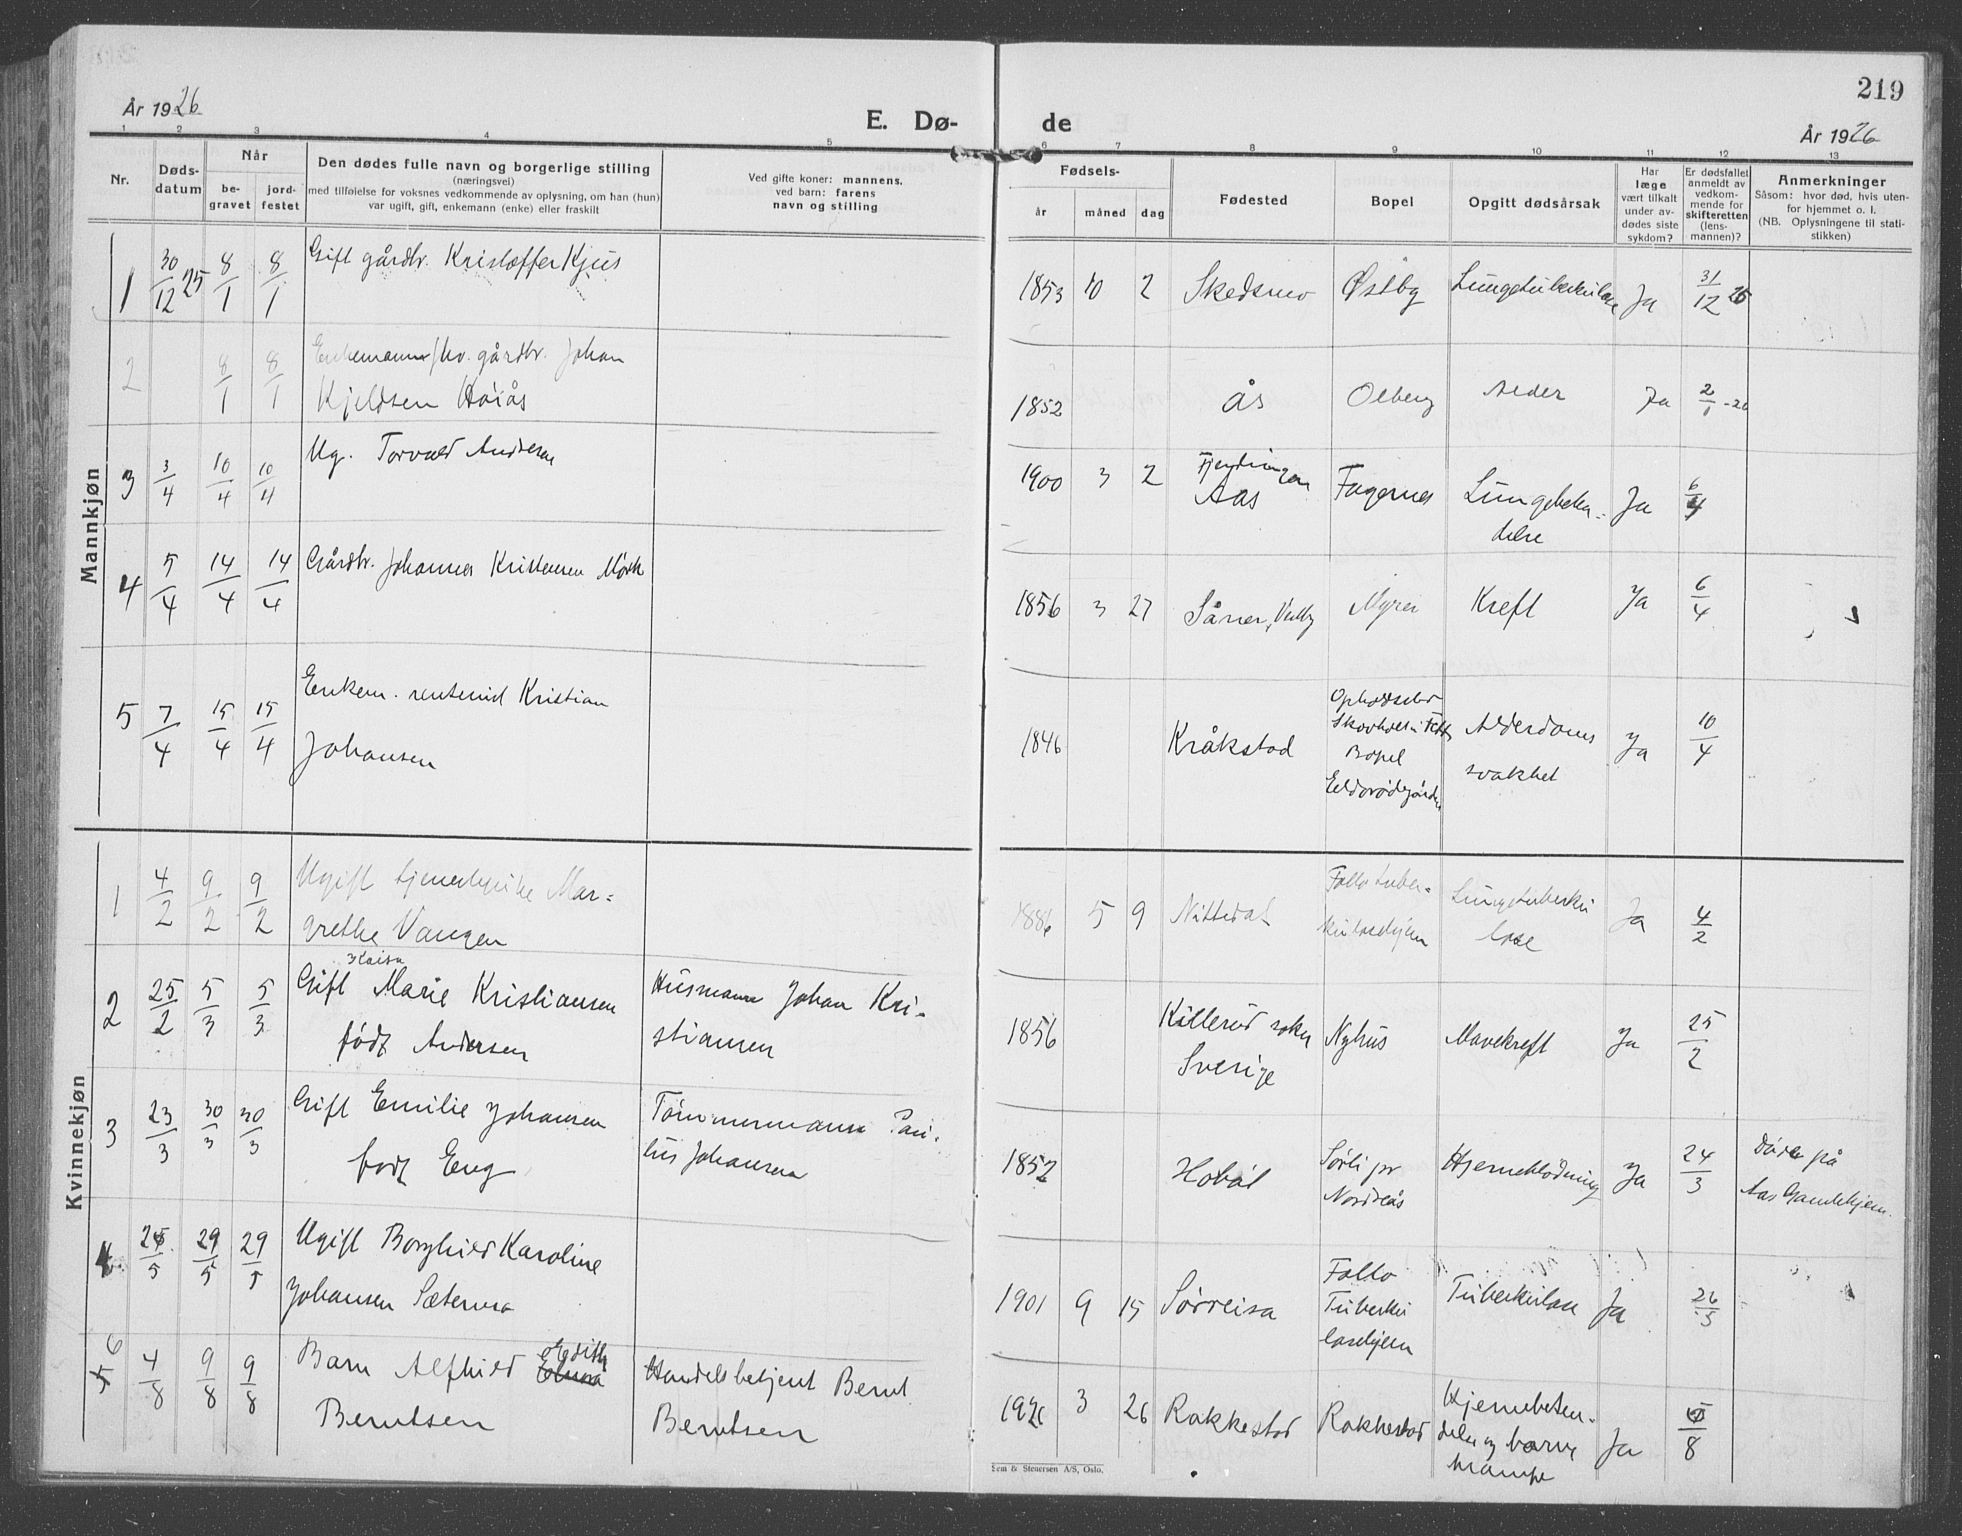 219
År 1926
E. Dø-
de
År 1926
1 2 3 4 5 6 7 8 9 10 11 12 13
Nr.
Døds-
datum
Når
be-
gravet
jord-
festet
Den dødes fulle navn og borgerlige stilling
(næringsvei)
med tilføielse for voksnes vedkommende av oplysning, om han (hun)
var ugift, gift, enkemann (enke) eller fraskilt
Ved gifte koner: mannens.
ved barn: farens
navn og stilling
Fødsels-
år
måned
dag
Fødested
Bopel
Opgitt dødsårsak
Har
læge
vært tilkalt
under av-
dødes siste
sykdom?
Er dødsfallet
anmeldt av
vedkom-
mende for
skifteretten
(lens-
mannen)?
Anmerkninger
Såsom: hvor død, hvis uten-
for hjemmet o. l.
(NB. Oplysningene til stati-
stikken)
Mannkjøn
1 30/12 25 8/1 8/1 Gift gårdbr. Kristoffer Kjus
1853 10 2 Skedsmo Østby Lungetuberkulose Ja 31/12 25
2 8/1 8/1 Enkemann fhv. gårdbr. Johan
Kjeldsen Høiås
1852 Ås Olberg Ja 2/1-26
3 3/4 10/4 10/4 Ug. Torvald Andersen
1900 3 2 Aas Fagernes Lungebeten-
delse Ja 6/4
4 5/4 14/4 14/4 Gårdbr. Johannes Kristensen Mørk
1856 3 27 Såner, Vestby Myrer Kreft Ja 6/4
5 7/4 15/4 15/4 Enkem. rentenist Kristian
Johansen
1846 Kråkstad Opholdssted
Skovholt i
Bopel
Alderdoms
svakhet Ja 10/4
Kvinnekjøn
1 4/2 9/2 9/2 Ugift tjenestepike Mar=
grethe Vangen
1886 5 9 Nittedal Follo tuber-
kulosehjem Lungetuberku
lose Ja 4/2
2 25/2 5/3 5/3 Gift Marie Kristiansen
født Andersen
Husmann Johan Kri-
stiansen
1856 Köllerud sokn
Sverige Nyhus Mavekreft Ja 25/2
3 23/3 30/3 30/3 Gift Emilie Johansen
født Eng
Tømmermann Pau-
lus Johansen
1852 Hobøl Sørli pr
Nordås Hjerneblødning Ja 24/3 Døde på
Aas Gamlehjem.
25/5 29/5 29/5 Ugift Borghild Karoline
Johansen Sætermo
1901 9 15 Sørreisa Follo
Tuberku
losehjem Tuberkulose Ja 26/5
6 4/8 9/8 9/8 Barn Alfhild Edith
Berntsen
Handelsbetjent Bernt
Berntsen
1926 3 26 Rakkestad Rakkestad Hjernebeten-
delse og barne
krampe Ja 5/8
Sem & Stenersen A/S, Oslo.